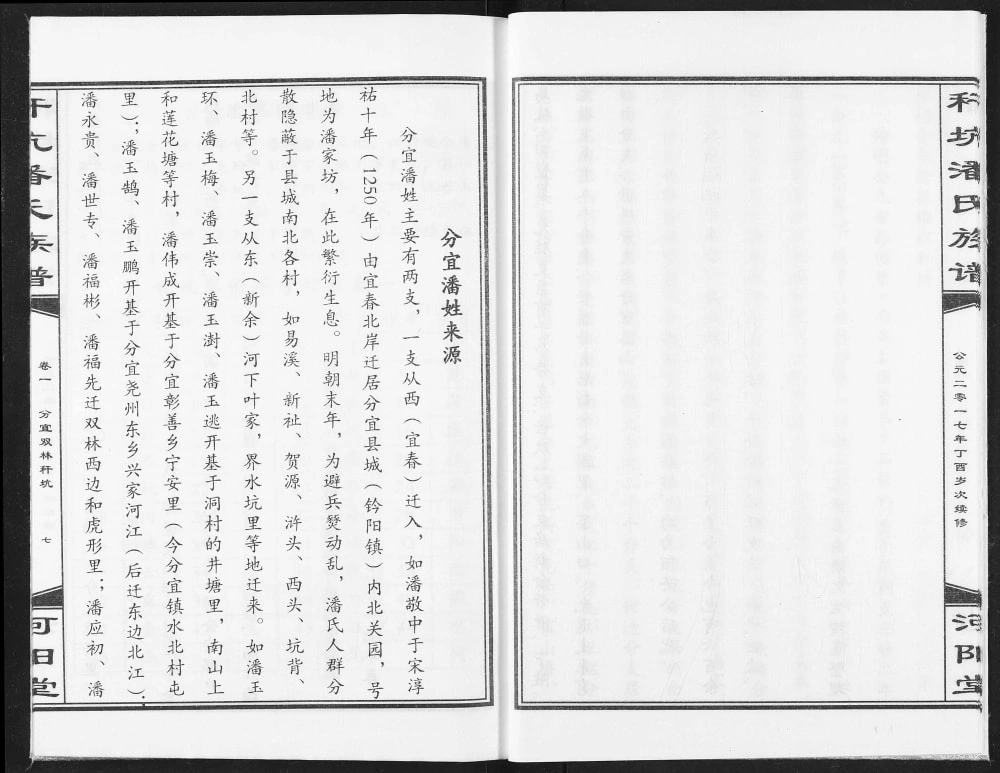 科坑潘氏族谱
公元二零一七年丁酉岁次续修
河阳堂
分宜潘姓来源
分宜潘姓主要有两支，一支从西（宜春）迁入，如潘敬中于宋淳
祐十年（1250年）由宜春北岸迁居分宜县城（钤阳镇）内北关园，号
地为潘家坊，在此繁衍生息。明朝末年，为避兵燹动乱，潘氏人群分
散隐蔽于县城南北各村，如易溪、新祉、贺源、浒头、西头、坑背、
北村等。另一支从东（新余）河下叶家，界水坑里等地迁来。如潘玉
环、潘玉梅、潘玉崇、潘玉澍、潘玉逃开基于洞村的井塘里，南山上
和莲花塘等村，潘伟成开基于分宜彰善乡宁安里（今分宜镇水北村屯
里）；潘玉鹄、潘玉鹏开基于分宜尧州东乡兴家河江（后迁东边北江）；
潘永贵、潘世专、潘福彬、潘福先迁双林西边和虎形里；潘应初、潘
氏族谱
卷一 分宜双林秆坑 七
阳堂